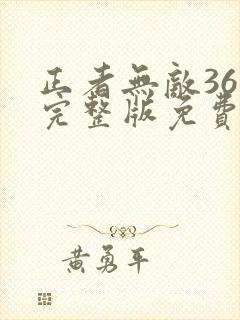 正者無敵36
完整版免費
黃勇平